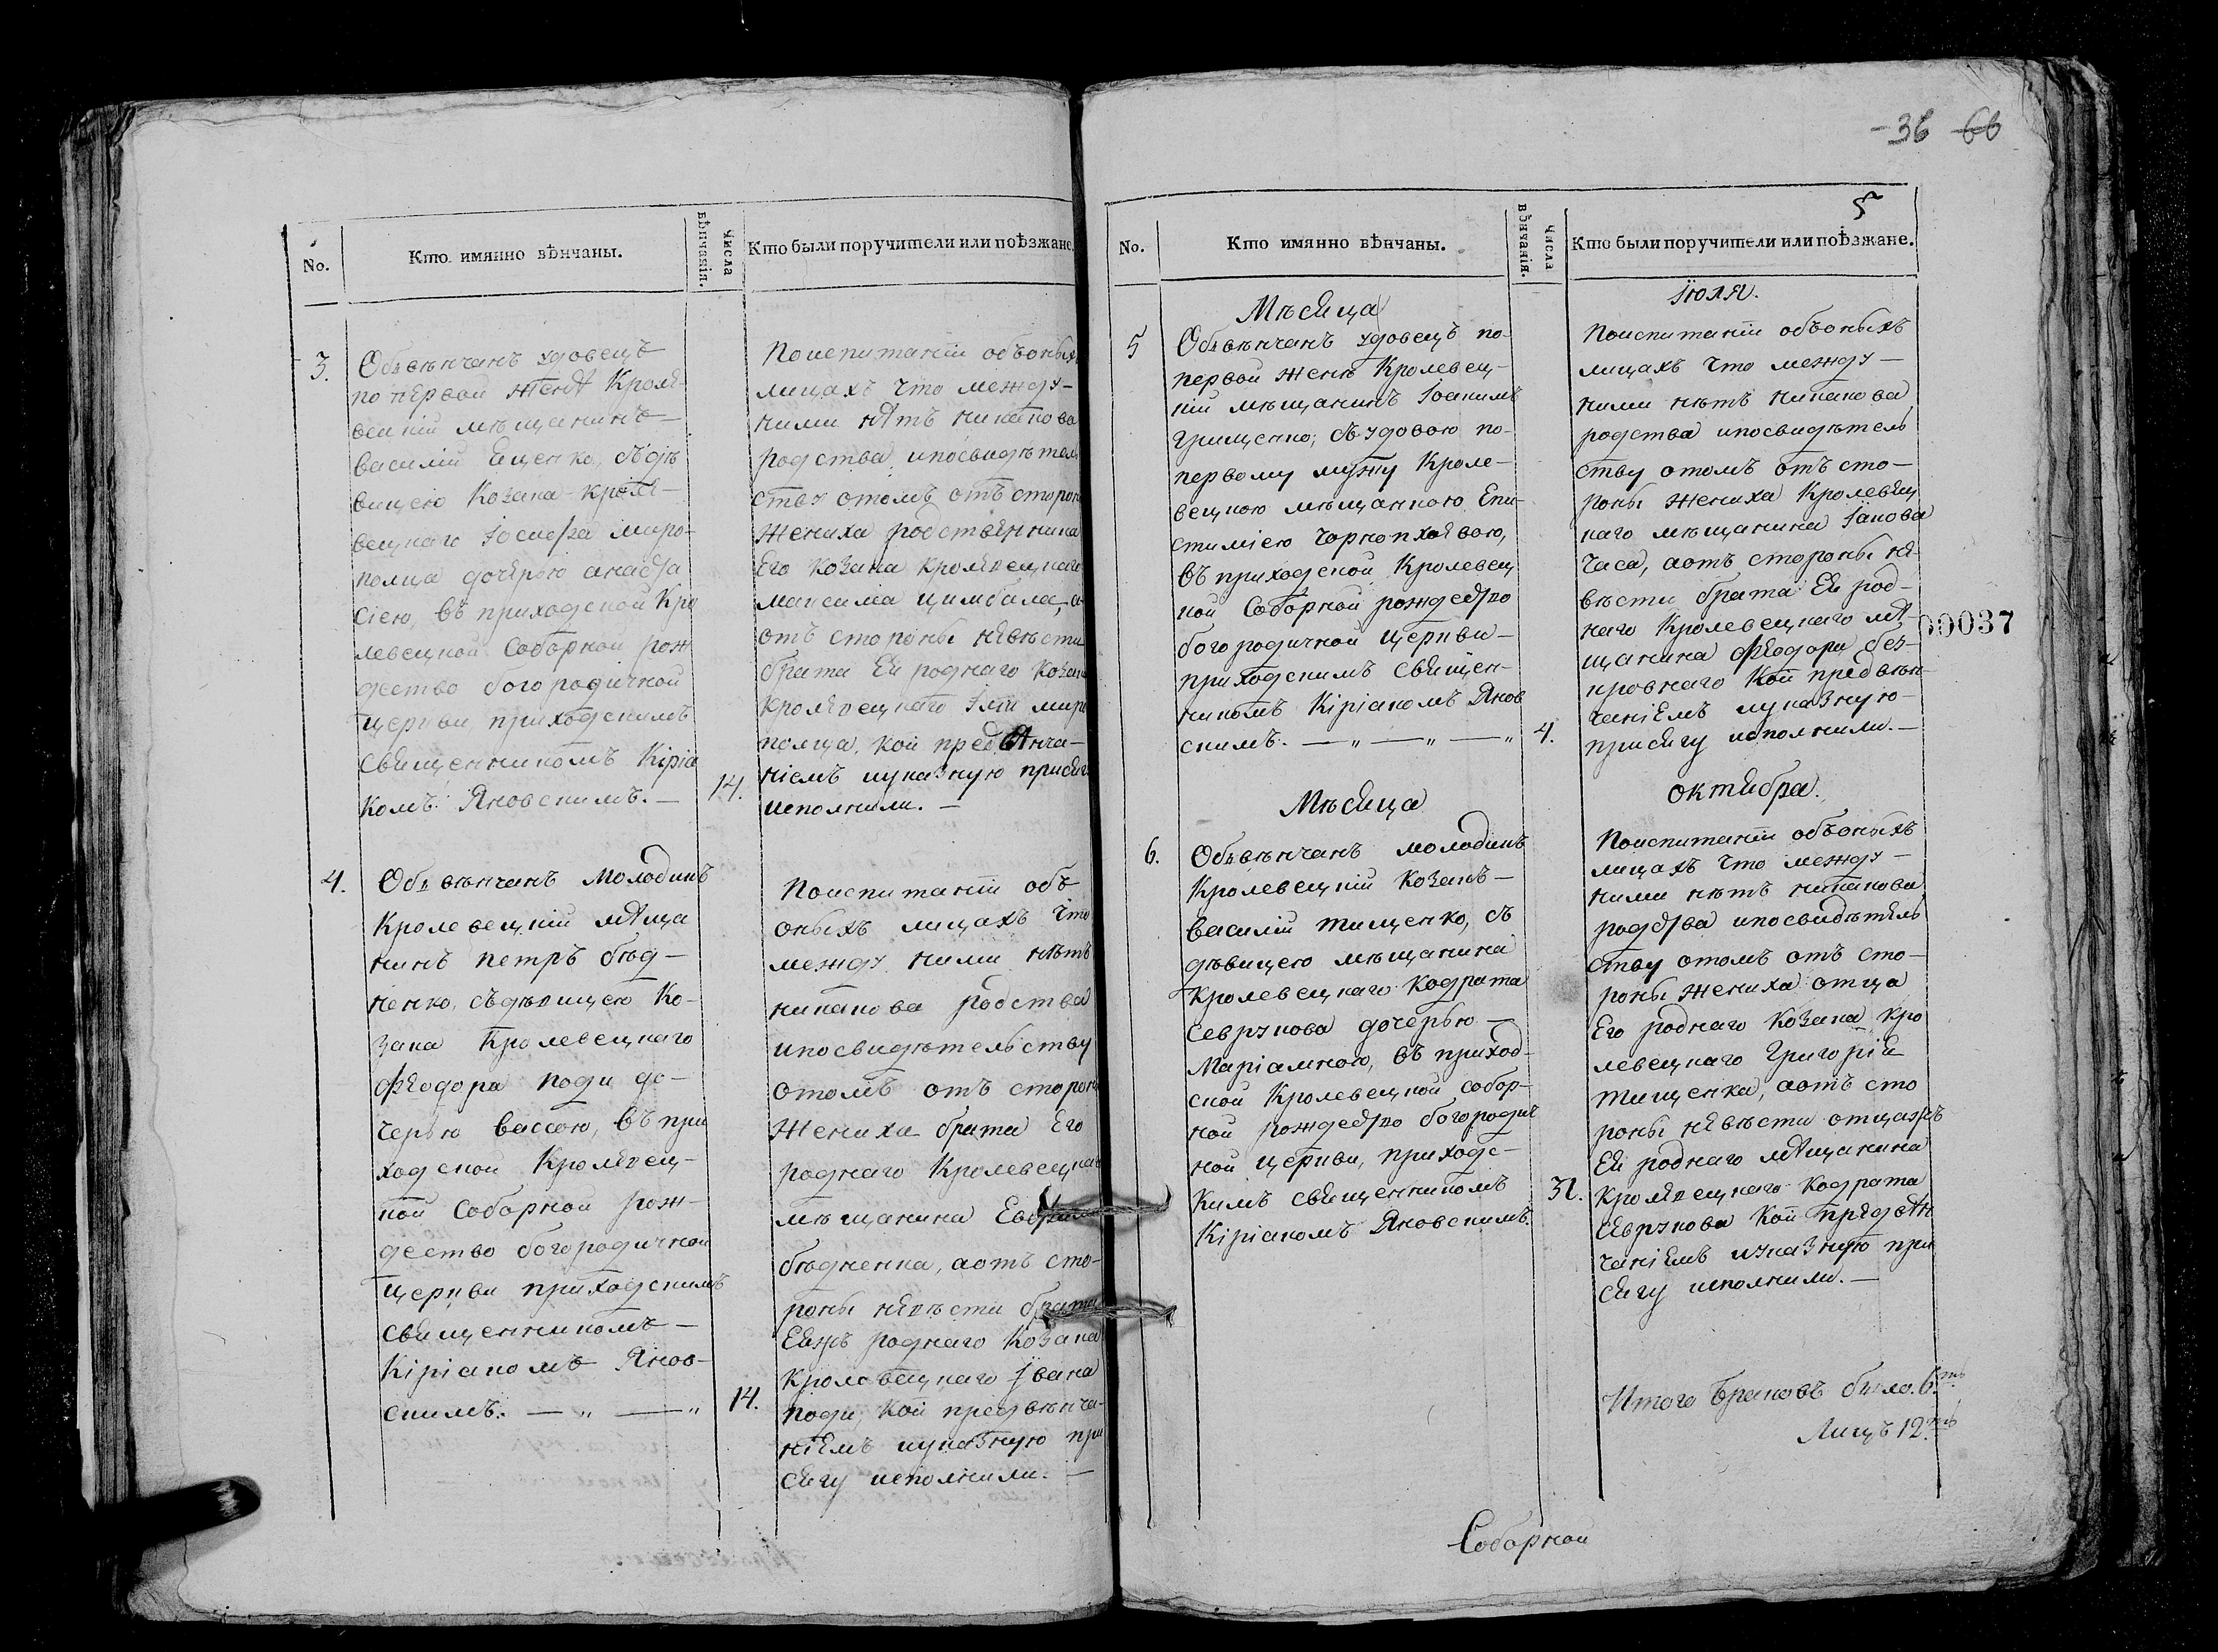 No.
Кто имянно вѣнчаны.
числа вѣнчанія.
Кто были поручители или поѣзжане.
3.
Обвѣнчанъ удовецъ
по первой женѣ Кроле-
вецкій мѣщанинъ
василій Ященко, съ дѣ
вицею Козака Кроле-
вецкаго Іосифа миро-
полца дочерью анаста
сіею, въ приходской Кро
левецкой Соборной рож
дество богородичной
церкви приходскимъ
священникомъ Киріа
комъ Яновскимъ. —
14.
Поиспитаніи объоныхъ
лицахъ что между-
ними нѣтъ никакова
родства ипосвидѣтель
ству отомъ отъ сторон
жениха родственника
Его Козака Кролевецкаго
максима цимбала, а
отъ стороны невѣсти
брата Ея роднаго Козака
кролевецкаго Іліи миро
полца, кои предвѣнча-
ніемъ иуказную присяг
исполнили. —
4.
Обвѣнчанъ Молодикъ
Кролевецкій мѣща
нинъ петръ бѣд-
ненко, съдѣвицею Ко-
зака Кролевецкаго
Феодора поди до-
черью вассою, въ при
ходской Кролевец-
кой Соборной рож-
дество богородичной
церкви приходскимъ
священникомъ —
Киріакомъ Янов-
скимъ. — „ — „
14.
Поиспитаніи объ
оныхъ лицахъ что
между ними нѣтъ
никакова родства
ипосвидѣтельству
отомъ отъ сторон
жениха брата Его
роднаго Кролевецкаго
мѣщанина
бѣдненка, аотъ сто-
роны невѣсти брата
Еяжъ роднаго Козака
Кролевецкаго Івана
поди, кои предвѣнча-
ніемъ иуказную при
сягу исполнили. —
36 66
5
No.
Кто имянно вѣнчаны.
числа вѣнчанія.
Кто были поручители или поѣзжане.
Мѣсяца
Іюля.
5
Обвѣнчанъ удовецъ по-
первой женѣ Кролевец-
кій мѣщанинъ Іоакимъ
Грищенко, съ удовою по-
первому мужу Кроле-
вецкою мѣщанкою Епи-
стиміею
въ приходской Кролевец
кой Соборной рождество
богородичной церкви —
приходскимъ священ-
никомъ Киріакомъ Янов
скимъ. — „ — „ — „
4.
Поиспитаніи объоныхъ
лицахъ что между —
ними нѣтъ никакова
родства ипосвидѣтель
ству отомъ отъ сто-
роны жениха Кролевец
каго мѣщанина Іакова
Часа, аотъ стороны не-
вѣсти брата Ея род-
наго Кролевецкаго мѣ-
щанина Феодора без-
кровнаго Кои предвѣн-
чаніемъ иуказную —
присягу исполнили. —
00037
Мѣсяца
октября.
6.
Обвѣнчанъ молодикъ
Кролевецкій Козакъ —
василій тищенко, съ
дѣвицею мѣщанина
Кролевецкаго Кодрата
Севрукова дочерью —
Маріамною, въ приход-
ской Кролевецкой собор-
ной рождество богородич
ной церкви, приходс-
кимъ священникомъ
Киріакомъ Яновскимъ.
31.
Поиспитаніи объоныхъ
лицахъ что между —
ними нѣтъ никакова
родства ипосвидѣтель
ству отомъ отъ сто-
роны жениха отца
Его роднаго Козака Кро
левецкаго Григорія
тищенка, аотъ сто
роны невѣсти отцажъ
Ея роднаго мѣщанина
Кролевецкаго Кодрата
севрукова Кои предвѣн
чаніемъ иуказную при
сягу исполнили. —
Итого браковъ было 6.ть
Лицъ 12.ть
Соборной